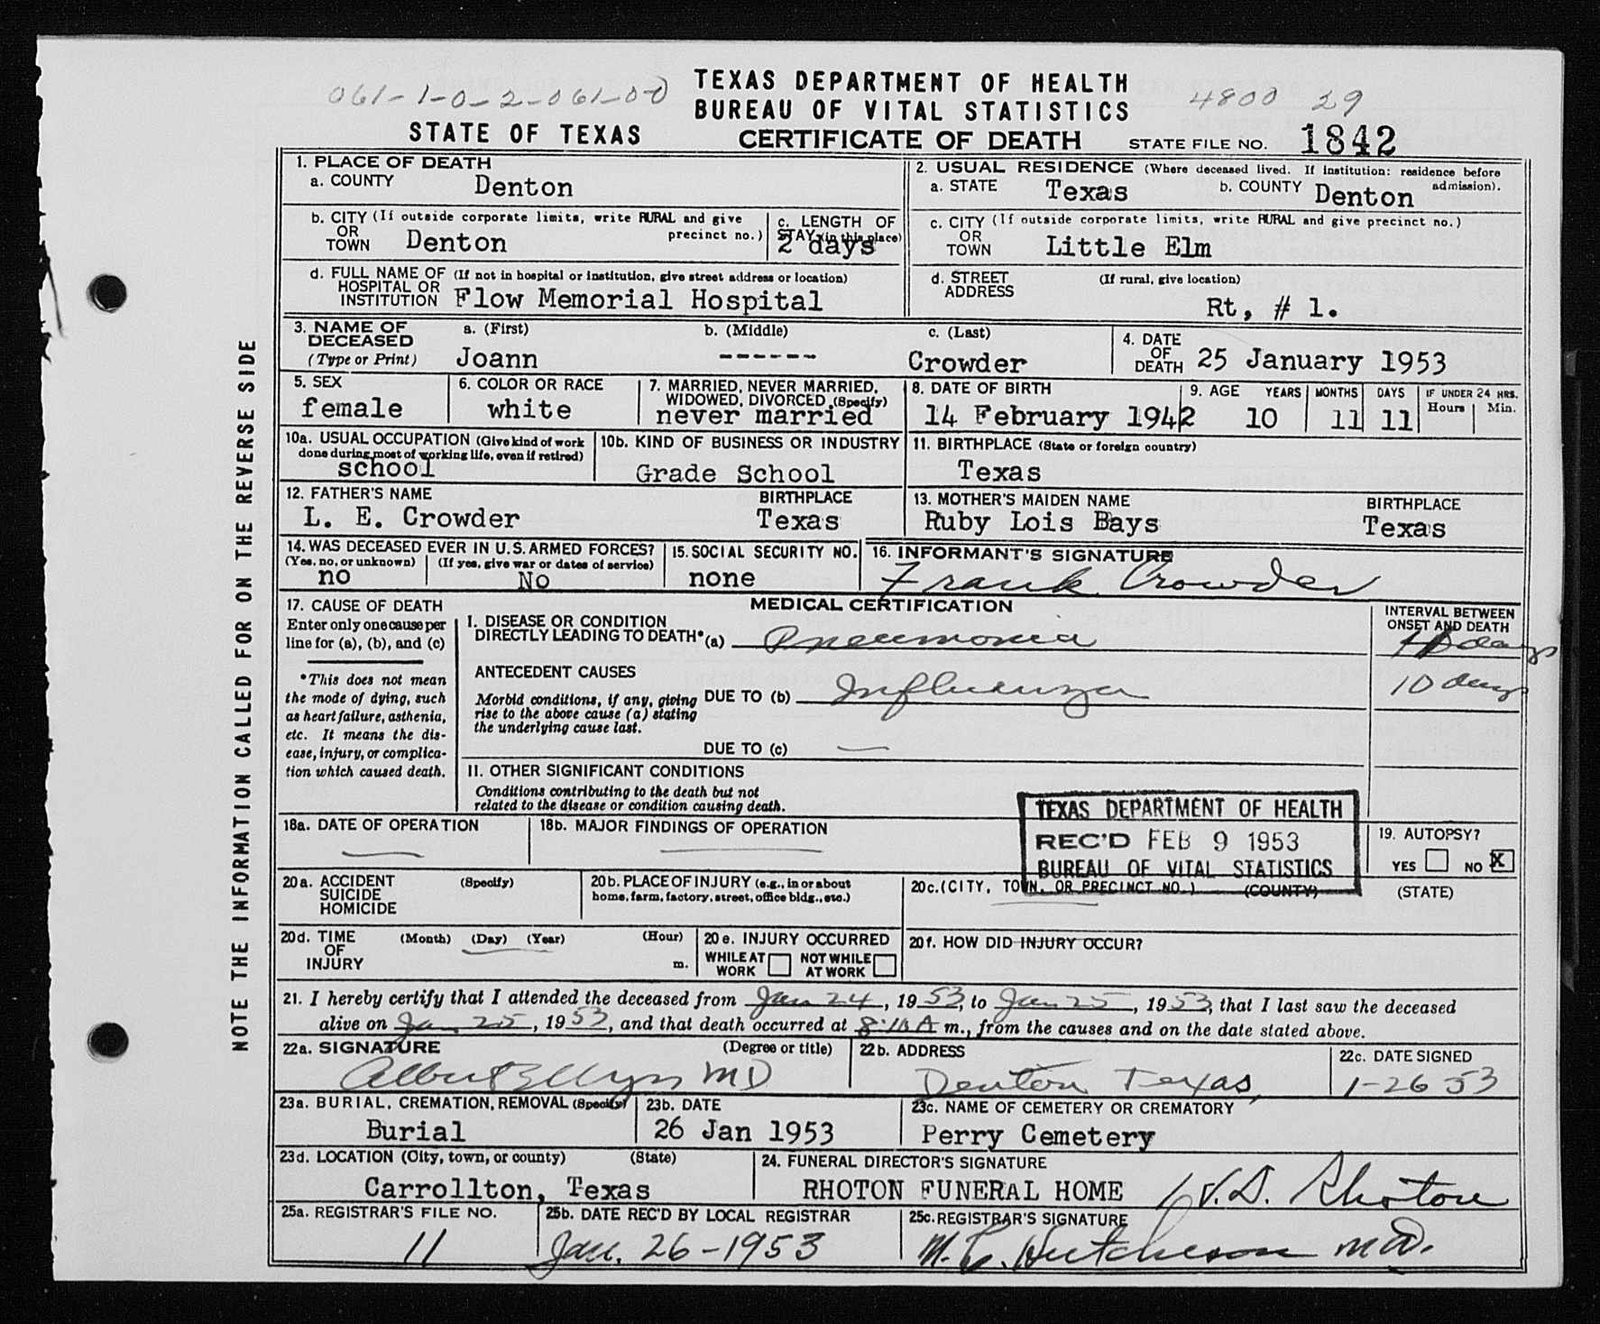 061-1-0-2-061-0-0
TEXAS DEPARTMENT OF HEALTH
BUREAU OF VITAL STATISTICS
4800 29
STATE OF TEXAS
CERTIFICATE OF DEATH
STATE FILE NO. 1842
NOTE THE INFORMATION CALLED FOR ON THE REVERSE SIDE
1. PLACE OF DEATH
a. COUNTY Denton
2. USUAL RESIDENCE (Where deceased lived. If institution: residence before admission).
a. STATE Texas b. COUNTY Denton
b. CITY (If outside corporate limits, write RURAL and give precinct no.)
OR
TOWN Denton
c. LENGTH OF
STAY (in this place)
2 days
c. CITY (If outside corporate limits, write RURAL and give precinct no.)
OR
TOWN Little Elm
d. FULL NAME OF (If not in hospital or institution, give street address or location)
HOSPITAL OR
INSTITUTION Flow Memorial Hospital
d. STREET (If rural, give location)
ADDRESS
Rt, # 1.
3. NAME OF
DECEASED
(Type or Print)
a. (First) b. (Middle) c. (Last)
Joann ------ Crowder
4. DATE
OF
DEATH 25 January 1953
5. SEX
female
6. COLOR OR RACE
white
7. MARRIED, NEVER MARRIED,
WIDOWED, DIVORCED (Specify)
never married
8. DATE OF BIRTH
14 February 1942
9. AGE YEARS MONTHS DAYS IF UNDER 24 HRS.
Hours Min.
10 11 11
10a. USUAL OCCUPATION (Give kind of work
done during most of working life, even if retired)
school
10b. KIND OF BUSINESS OR INDUSTRY
Grade School
11. BIRTHPLACE (State or foreign country)
Texas
12. FATHER'S NAME BIRTHPLACE
L. E. Crowder Texas
13. MOTHER'S MAIDEN NAME BIRTHPLACE
Ruby Lois Bays Texas
14. WAS DECEASED EVER IN U.S. ARMED FORCES?
(Yes, no, or unknown) (If yes, give war or dates of service)
no No
15. SOCIAL SECURITY NO.
none
16. INFORMANT'S SIGNATURE
Frank Crowder
17. CAUSE OF DEATH
Enter only one cause per
line for (a), (b), and (c)
*This does not mean
the mode of dying, such
as heart failure, asthenia,
etc. It means the dis-
ease, injury, or complica-
tion which caused death.
MEDICAL CERTIFICATION
INTERVAL BETWEEN
ONSET AND DEATH
I. DISEASE OR CONDITION
DIRECTLY LEADING TO DEATH* (a) Pneumonia days
ANTECEDENT CAUSES
Morbid conditions, if any, giving
rise to the above cause (a) stating
the underlying cause last.
DUE TO (b) Influenza 10 days
DUE TO (c) —
II. OTHER SIGNIFICANT CONDITIONS
Conditions contributing to the death but not
related to the disease or condition causing death.
TEXAS DEPARTMENT OF HEALTH
REC'D FEB 9 1953
BUREAU OF VITAL STATISTICS
18a. DATE OF OPERATION
18b. MAJOR FINDINGS OF OPERATION
19. AUTOPSY?
YES NO X
20a. ACCIDENT (Specify)
SUICIDE
HOMICIDE
20b. PLACE OF INJURY (e.g., in or about
home, farm, factory, street, office bldg., etc.)
20c. (CITY, TOWN, OR PRECINCT NO.) (COUNTY) (STATE)
20d. TIME (Month) (Day) (Year) (Hour)
OF
INJURY m.
20e. INJURY OCCURRED
WHILE AT WORK NOT WHILE AT WORK
20f. HOW DID INJURY OCCUR?
21. I hereby certify that I attended the deceased from Jan 24, 1953, to Jan 25, 1953, that I last saw the deceased
alive on Jan 25, 1953, and that death occurred at 8:10 A m., from the causes and on the date stated above.
22a. SIGNATURE (Degree or title)
MD
22b. ADDRESS
Denton Texas,
22c. DATE SIGNED
1-26-53
23a. BURIAL, CREMATION, REMOVAL (Specify)
Burial
23b. DATE
26 Jan 1953
23c. NAME OF CEMETERY OR CREMATORY
Perry Cemetery
23d. LOCATION (City, town, or county) (State)
Carrollton, Texas
24. FUNERAL DIRECTOR'S SIGNATURE
RHOTON FUNERAL HOME by V.D. Rhoton
25a. REGISTRAR'S FILE NO.
11
25b. DATE REC'D BY LOCAL REGISTRAR
Jan. 26-1953
25c. REGISTRAR'S SIGNATURE
M. C. Hutcheson MD.